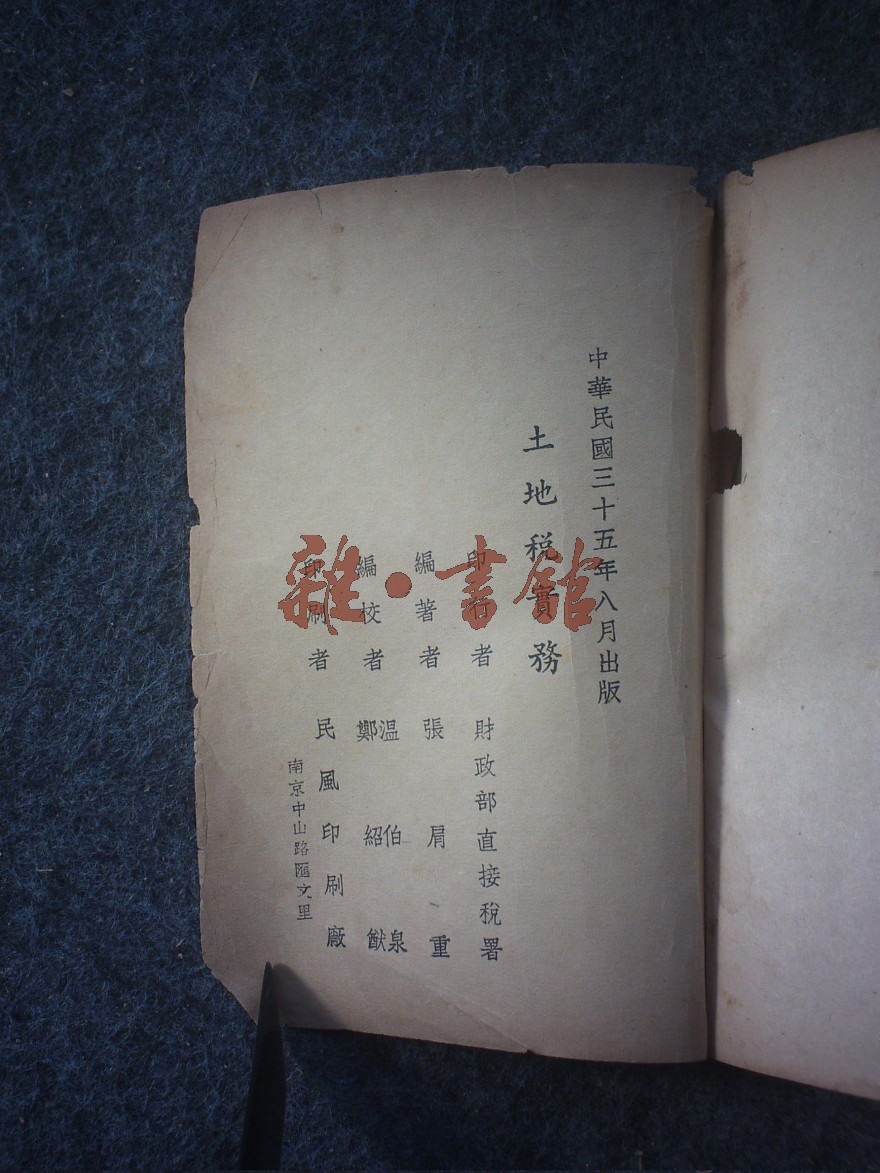 中華民國三十五年八月出版
土地稅實務
印行者 財政部直接稅署
編著者 張肩重
編校者 温伯泉 鄭紹猷
印刷者 民風印刷廠
南京中山路匯文里
雜·書館